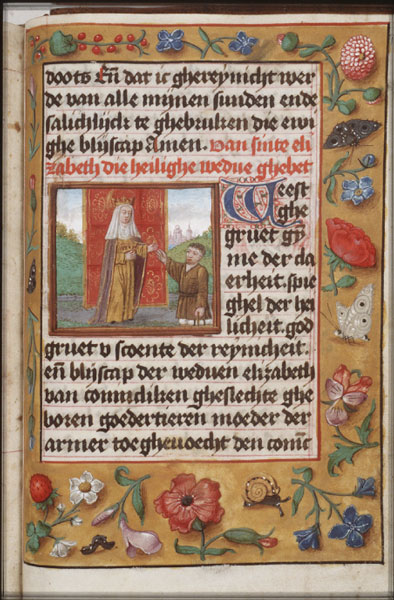 doots En̄ dat ic ghereynicht wer
de van alle mijnen sunden ende
salichlijck te ghebruken die ewi
ghe blijscap Amen. Van sinte eli
zabeth die heilighe wedue ghebet
Weest
ghe
gruet gy
me der da
erheit. spie
ghel der hei
licheit. god
gruet v scoente der reynicheit.
en̄ blijscap der weduen elizabeth
van conincliken gheslechte ghe
boren goedertieren moeder der
armer toe gheuoecht den coninc